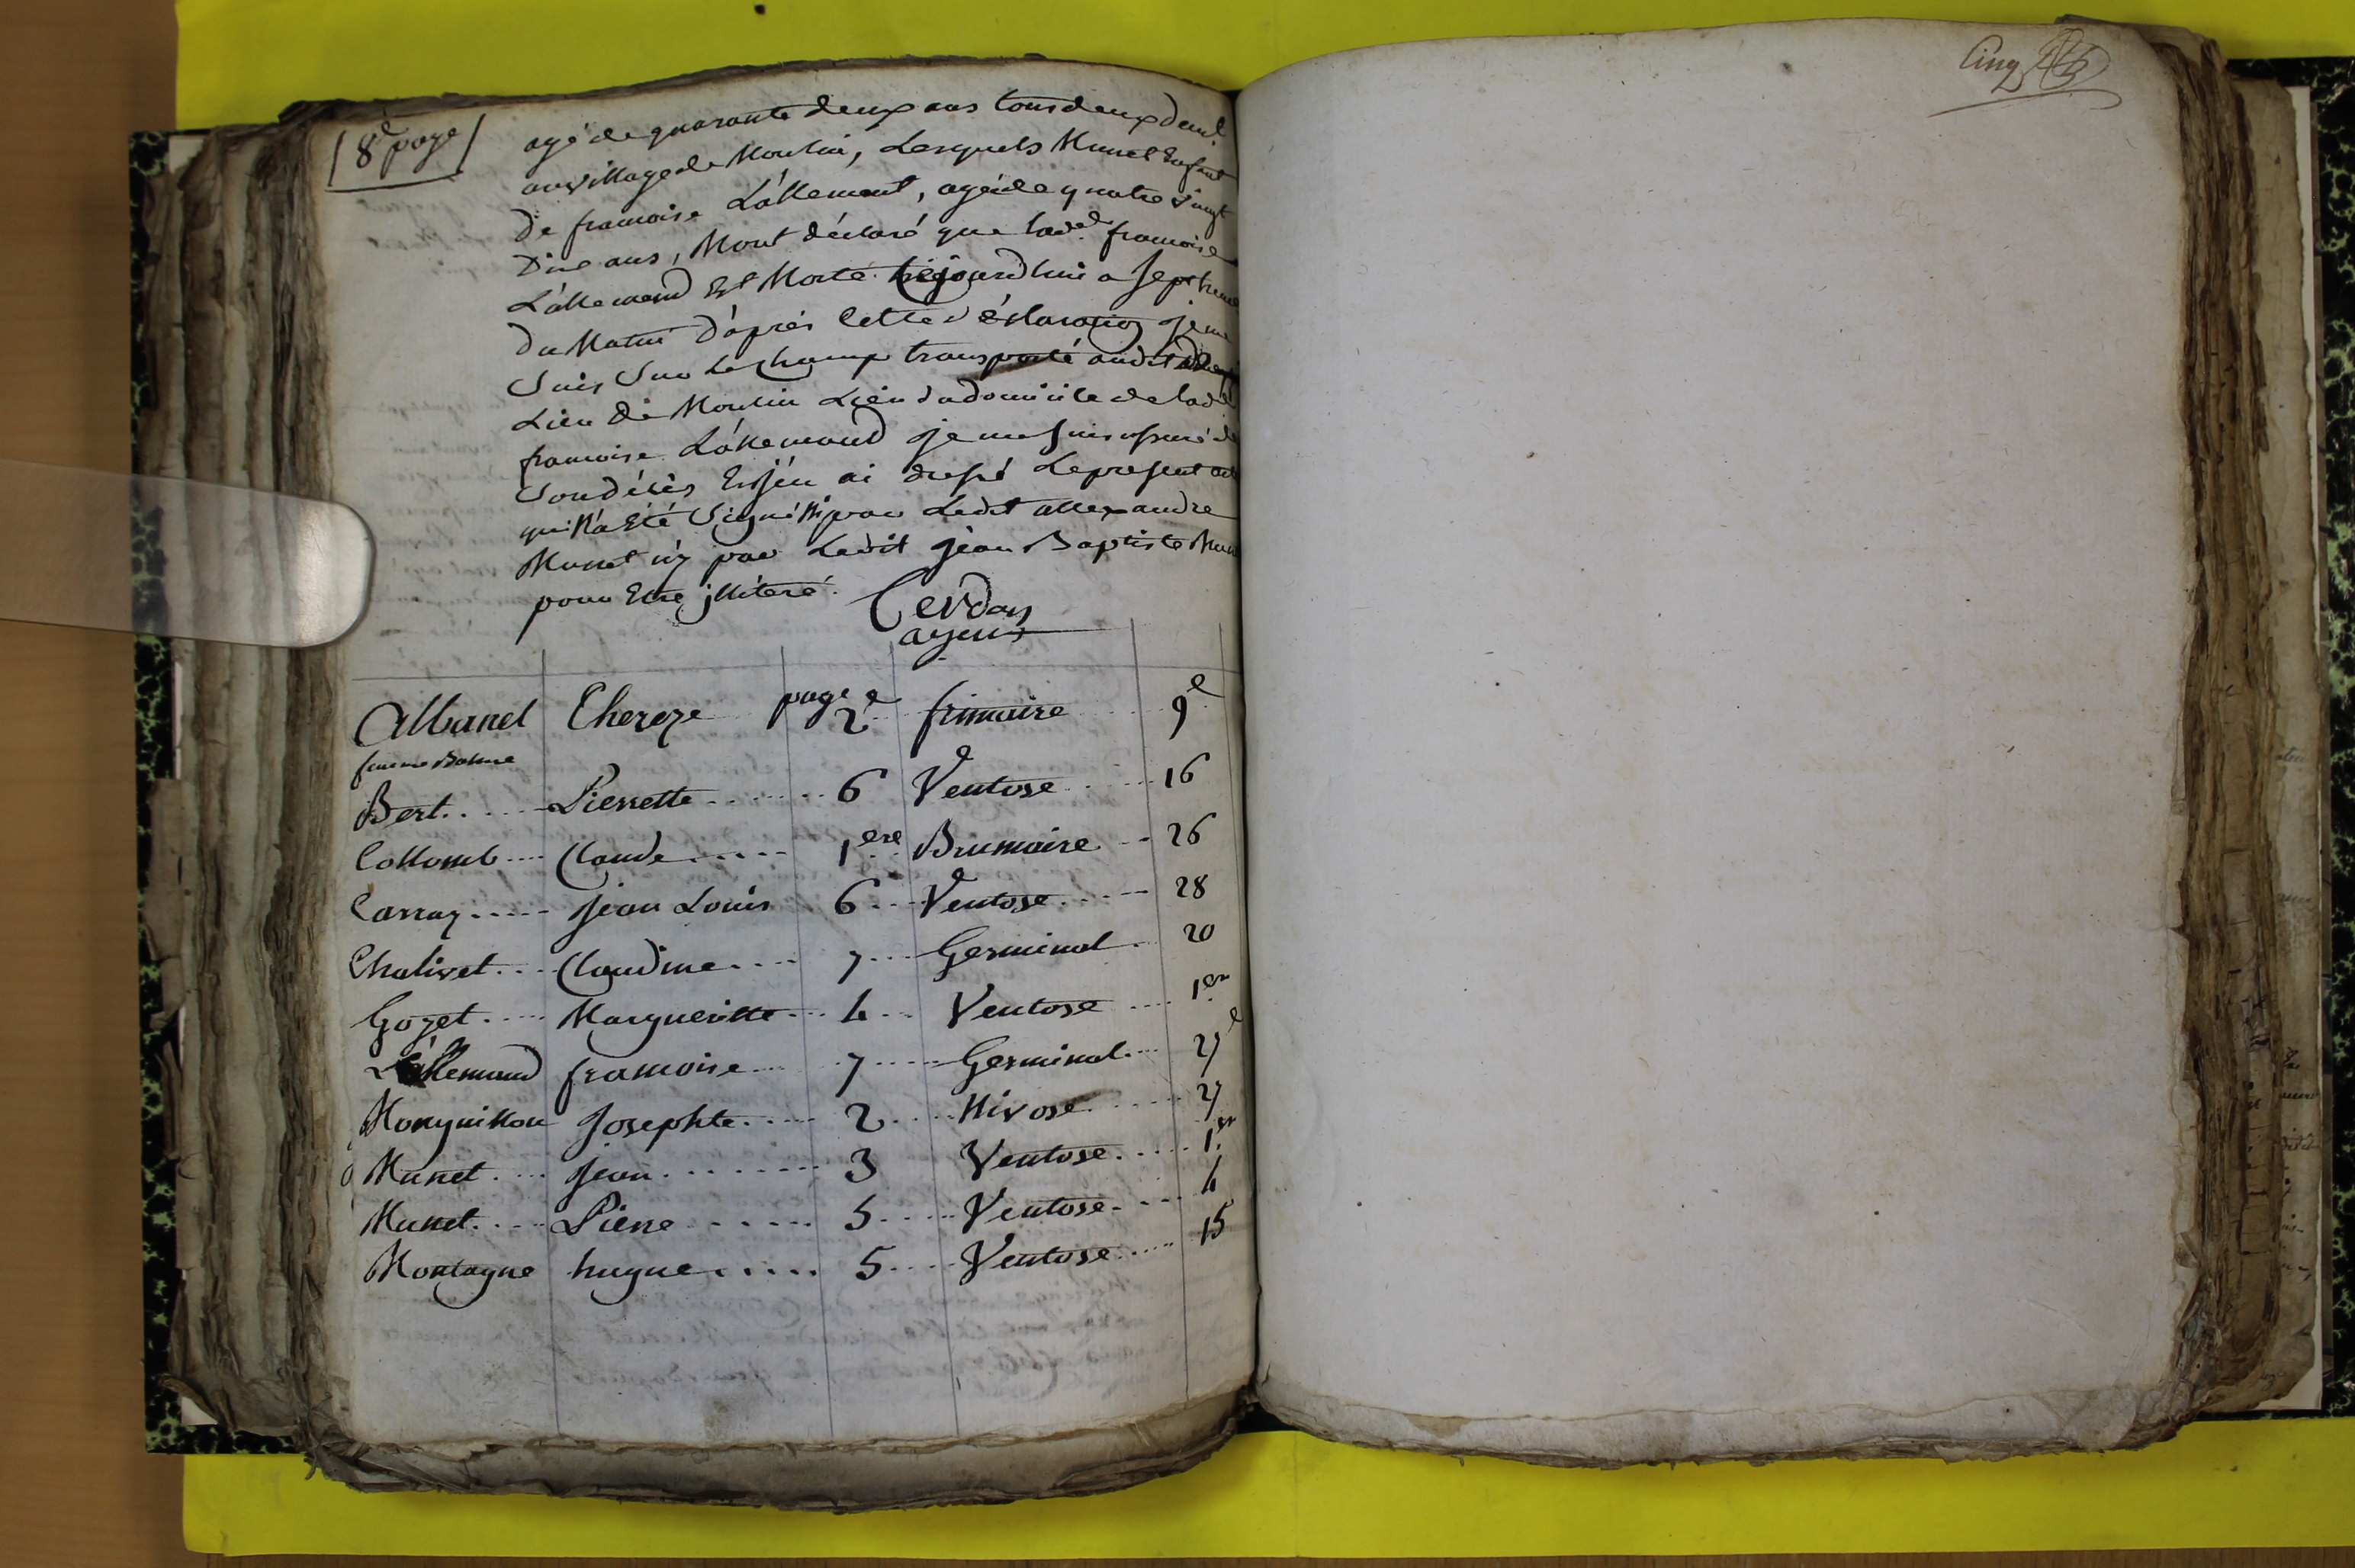 8e page
agé de quarante deux ans tous deux dud.
au village de Moulin, Lesquels Munet Enfant
De francoise Lallemant, agée de quatre vingt
Dix ans, M'ont déclaré que lad.e francoise
Lallemand Est Morte aujourd'huis a Sept heures
du Matin D'après Cette déclaration je me
Suis Sur Le Champ transporté audit
Lieu de Moulin Lieu du domicile de lad.e
francoise Lallemand je me suis assuré de
Son décès Et j'en ai dressé Le present acte
qui N'a Eté Signé Ni par Ledit allexandre
Munet ny par Ledit jean Baptiste Munet
pour Etre illiteré.
Cerdon
agent
Albanel Thereze page 2e frimaire 9e
femme
Bert Pierrette 6 Ventose 16
Collomb Claude 1ere Brumaire 26
Carray jean Louis 6 Ventose 28
Chalivet Claudine 7 Germinal 20
Gozet Margueritte 4 Ventose 1er
Lallemand francoise 7 Germinal 27e
Monguillon Josephte 2 Nivose 27
Munet jean 3 Ventose 1er
Munet Pierre 5 Ventose 4
Montagne hugue 5 Ventose 15
Cinq